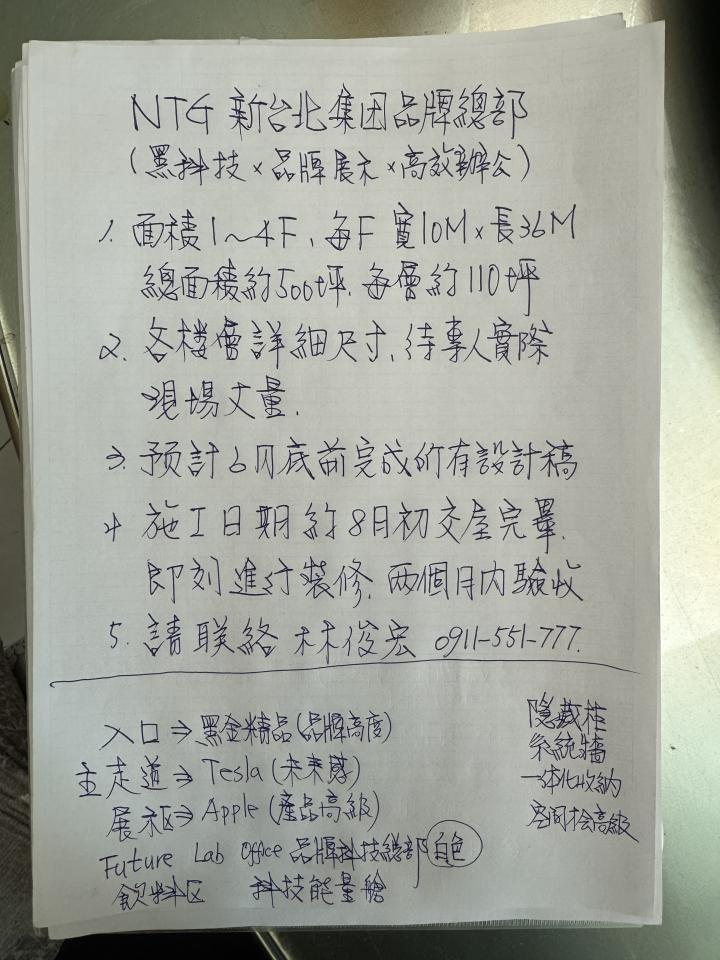 NTG 新台北集团品牌總部
(黑科技×品牌展示×高效辦公)
1. 面積1~4F、每F寬10M×長36M
總面積約500坪. 每層約110坪
2. 各楼層詳細尺寸、待專人實際
現場丈量.
3. 预計6月底前完成所有設計稿
4 施工日期約8月初交屋完畢.
即刻進行裝修. 两個月内驗收
5. 請联絡 林俊宏 0911-551-777.
入口⇒黑金精品(品牌高度)
主走道⇒Tesla(未來感)
展示区⇒Apple(產品高級)
Future Lab Office 品牌科技總部 白色
飲料区 科技能量艙
隐藏柜
系統牆
一体化收納
空间会高級